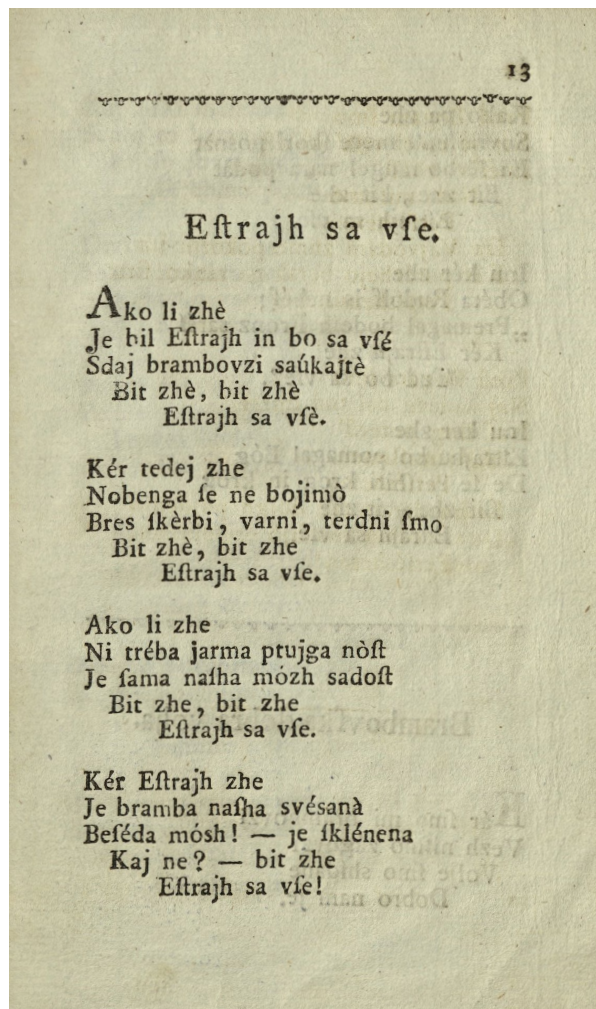 13
Eſtrajh sa vſe.
Ako li zhè
Je bil Eſtrajh in bo sa vſé
Sdaj brambovzi saúkajtè
Bit zhè, bit zhè
Eſtrajh sa vſè.
Kér tedej zhe
Nobenga ſe ne bojimò
Bres ſkèrbi, varni, terdni ſmo
Bit zhè, bit zhe
Eſtrajh sa vſe.
Ako li zhe
Ni tréba jarma ptujga nòſt
Je ſama naſha mózh sadoſt
Bit zhe, bit zhe
Eſtrajh sa vſe.
Kér Eſtrajh zhe
Je bramba naſha svésanà
Beſéda mósh! — je ſklénena
Kaj ne? — bit zhe
Eſtrajh sa vſe!